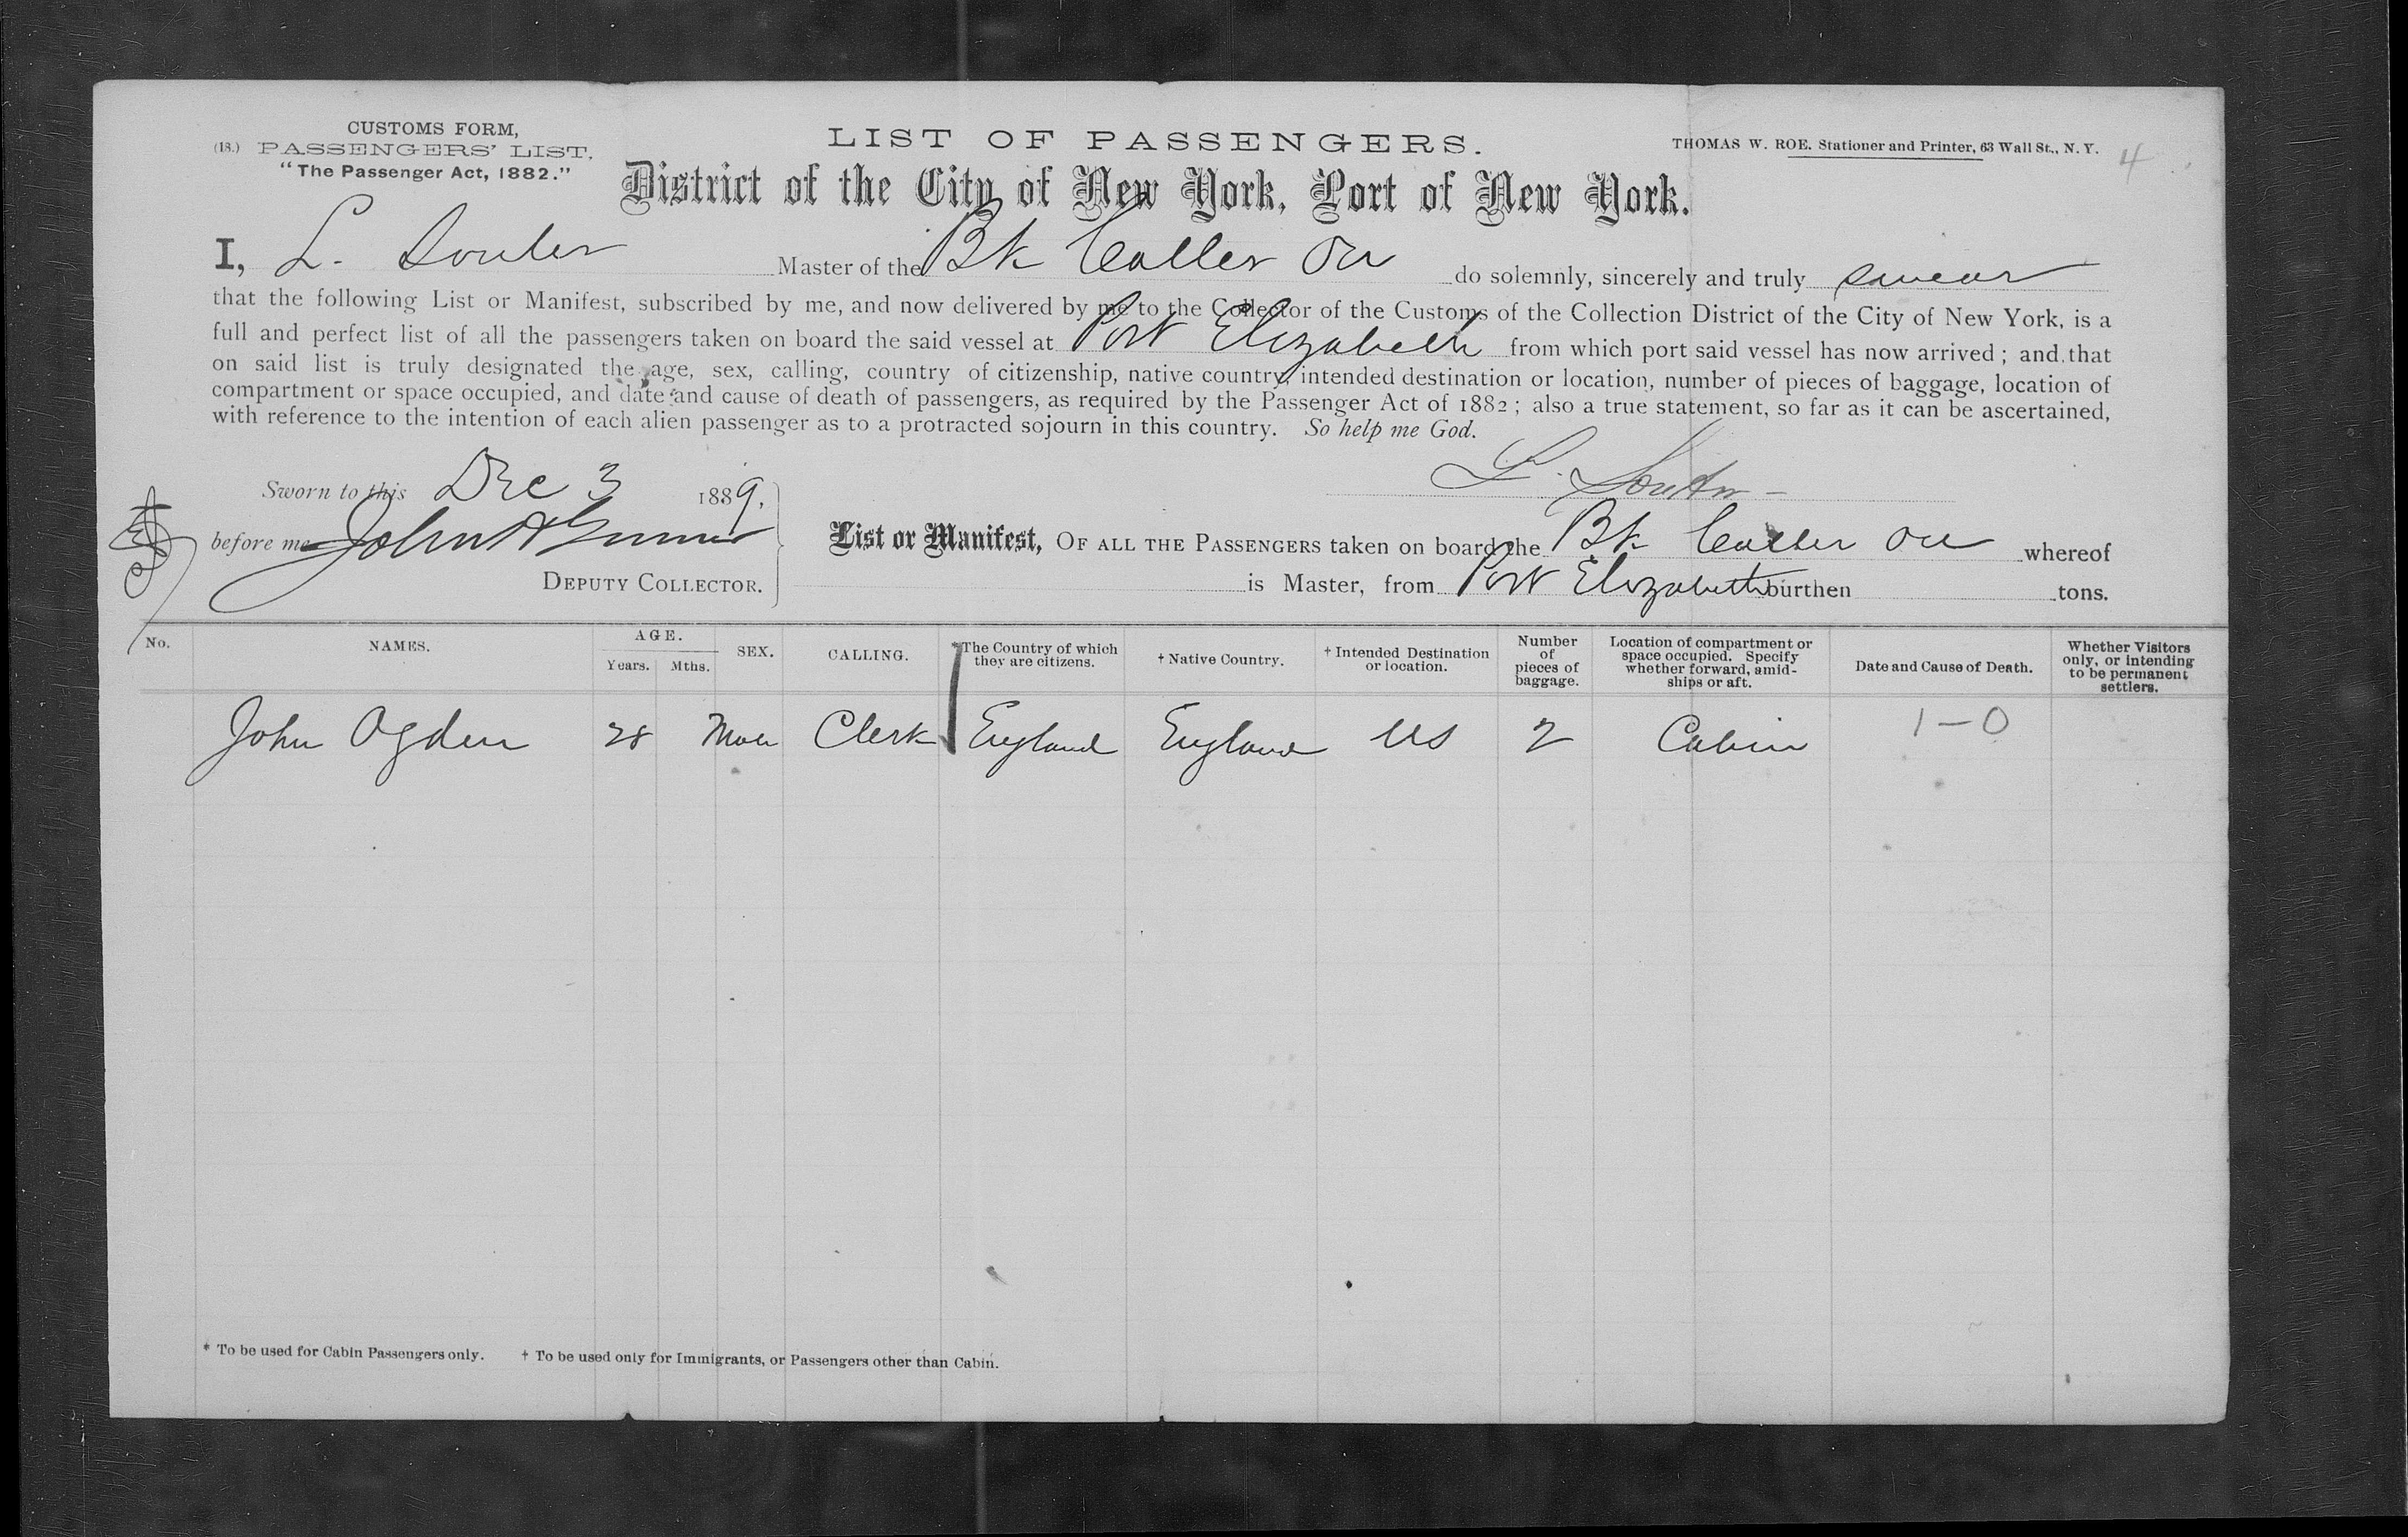 CUSTOMS FORM,
(18.) PASSENGERS' LIST.
"The Passenger Act, 1882."
LIST OF PASSENGERS.
THOMAS W. ROE. Stationer and Printer, 63 Wall St., N. Y.
4
District of the City of New York, Port of New York.
I, L. Souter Master of the Bk Coller Ou do solemnly, sincerely and truly swear
that the following List or Manifest, subscribed by me, and now delivered by me to the Collector of the Customs of the Collection District of the City of New York, is a
full and perfect list of all the passengers taken on board the said vessel at Port Elizabeth from which port said vessel has now arrived; and that
on said list is truly designated the age, sex, calling, country of citizenship, native country, intended destination or location, number of pieces of baggage, location of
compartment or space occupied, and date and cause of death of passengers, as required by the Passenger Act of 1882; also a true statement, so far as it can be ascertained,
with reference to the intention of each alien passenger as to a protracted sojourn in this country. So help me God.
L. Souter
Sworn to this Dec 3 1889,
before me John A
DEPUTY COLLECTOR.
List or Manifest, OF ALL THE PASSENGERS taken on board the Bk Coller Ou whereof
is Master, from Port Elizabeth burthen tons.
No. NAMES. AGE. Years. Mths. SEX. CALLING. *The Country of which they are citizens. † Native Country. † Intended Destination or location. Number of pieces of baggage. Location of compartment or space occupied. Specify whether forward, amid-ships or aft. Date and Cause of Death. Whether Visitors only, or intending to be permanent settlers.
John Ogden 28 Male Clerk England England US 2 Cabin 1-0
* To be used for Cabin Passengers only. † To be used only for Immigrants, or Passengers other than Cabin.